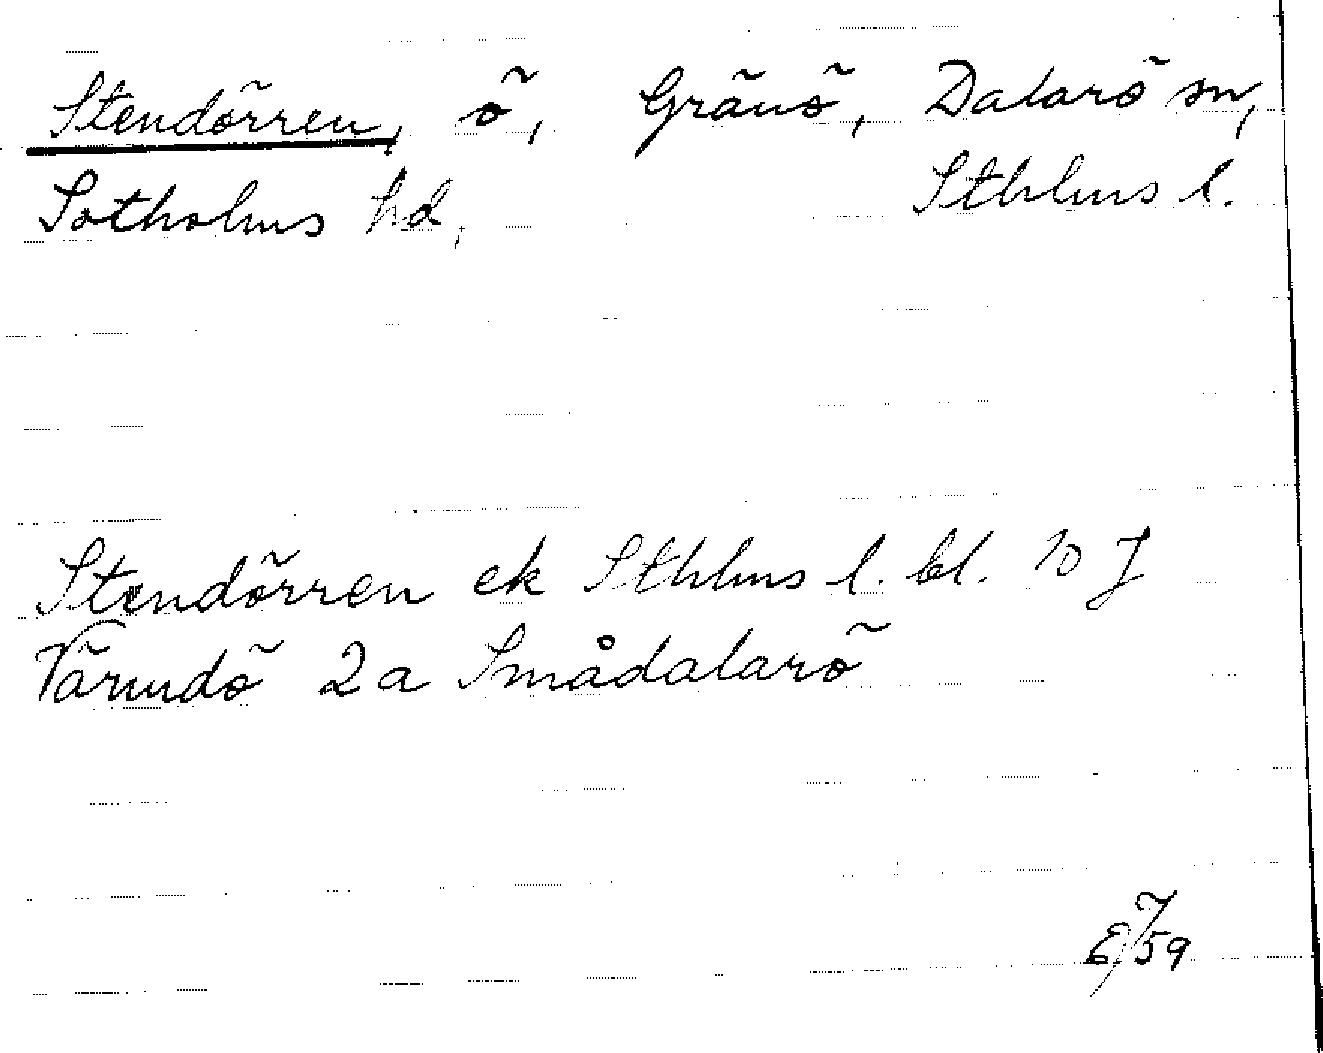 Stendörren, ö, Gränö, Dalarö sn,
Sotholms hd, Sthlms l.
Stendörren ek Sthlms l. bl. 10 J
Värmdö 2a Smådalarö